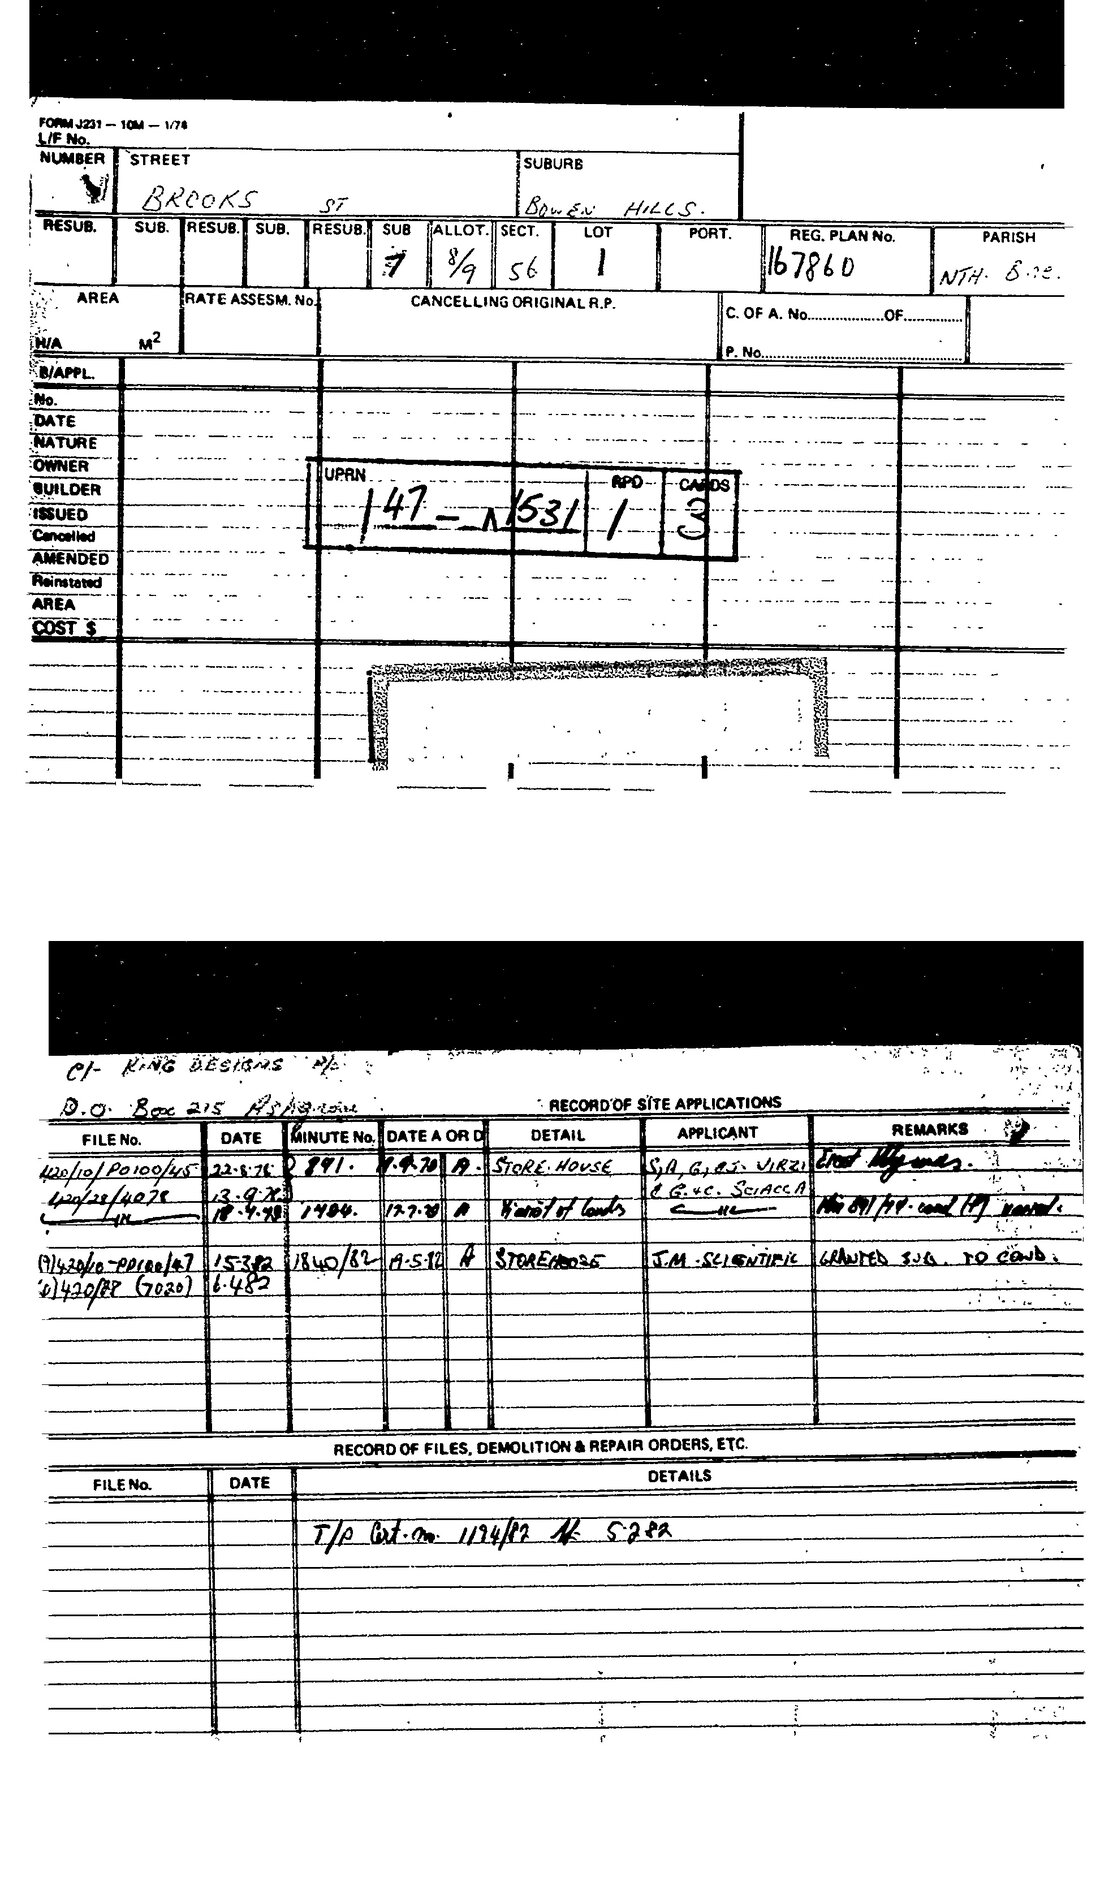 FORM J231 — 10M — 1/78
L/F No.
NUMBER STREET SUBURB
BROOKS ST BOWEN HILLS.
RESUB. SUB. RESUB. SUB. RESUB. SUB ALLOT. SECT. LOT PORT. REG. PLAN No. PARISH
7 8/9 56 1 167860 NTH. Bne.
AREA RATE ASSESM. No. CANCELLING ORIGINAL R.P.
C. OF A. No. OF
H/A M2 P. No.
B/APPL.
No.
DATE
NATURE
OWNER
BUILDER
ISSUED
Cancelled
AMENDED
Reinstated
AREA
COST $
UPRN RPD CARDS
147 — 1531 1 3
C/- KING DESIGNS P/L
P.O. Box 215 Ashgrove
RECORD OF SITE APPLICATIONS
FILE No. DATE MINUTE No. DATE A OR D DETAIL APPLICANT REMARKS
420/10/P0100/45 22-8-78 891. A. STORE HOUSE S,A,G, & J. VIRZI Erect
420/28/4078 13-9-78 & G. & C. SCIACCA
1404. A
420/10-PD100/47 15-3-82 1840/82 19-5-82 A STOREHOUSE J.M. SCIENTIFIC GRANTED SUB. TO COND.
420/88 (7020) 6-4-82
RECORD OF FILES, DEMOLITION & REPAIR ORDERS, ETC.
FILE No. DATE DETAILS
T/P Cert. no. 1194/82 5-2-82